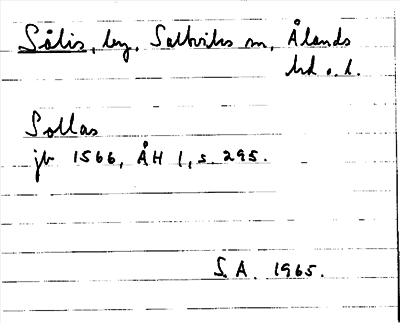 Sålis, by, Saltviks sn, Ålands
hd o. l.
Sollas
jb 1566, ÅH 1, s. 295.
S.A. 1965.